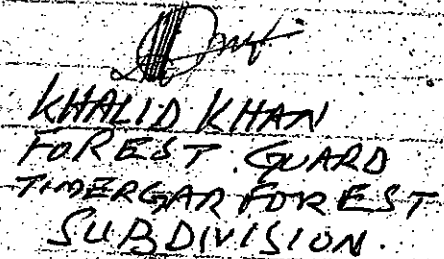 KHALID KHAN
FOREST GUARD
TIMERGAR FOREST
SUBDIVISION.